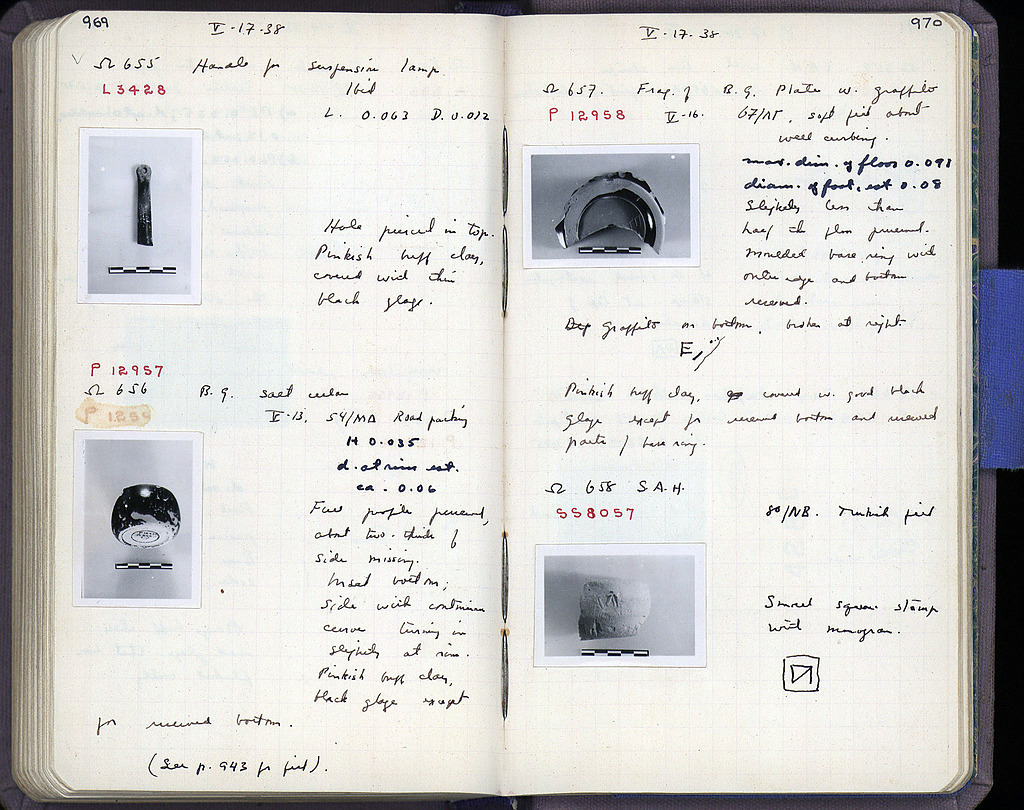 969
V-17-38
Ω 655 Handle for suspension lamp.
L3428
Ibid
L. 0.063 D. 0.012
Hole pierced in top.
Pinkish buff clay,
covered with thin
black glaze.
P 12957
Ω 656 B.G. salt cellar
P 1259
V-13, 54/ΜΔ Road packing
H 0.035
d. at rim est.
ca. 0.06
Full profile preserved,
about two-thirds of
side missing.
Inset bottom;
side with continuous
curve turning in
slightly at rim.
Pinkish buff clay,
black glaze except
for reserved bottom.
(See p. 943 for fill).
970
V-17-38
Ω 657. Frag. of B.G. Plate w. graffito
P 12958 V-16. 67/ΛΓ, soft fill about
well curbing.
max. dim. of floor 0.091
diam. of foot, est 0.08
Slightly less than
half the floor preserved.
Moulded base ring with
outer edge and bottom
reserved.
graffito on bottom, broken at right.
E
Pinkish buff clay, covered w. good black
glaze except for reserved bottom and reserved
parts of base ring.
Ω 658 S.A.H.
SS8057
80/ΝΒ. Turkish fill
Small square stamp
with monogram.